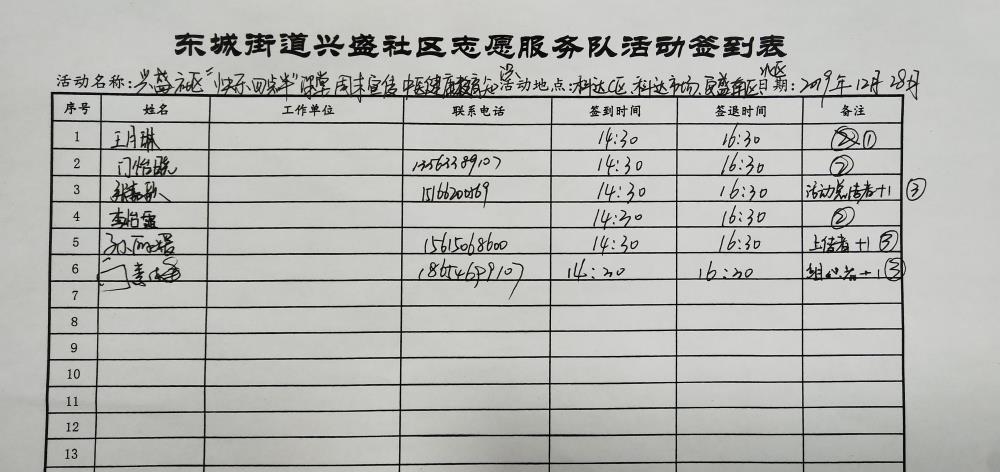 东城街道兴盛社区志愿服务队活动签到表
活动名称:兴盛社区"快乐四点半"课堂周末宣传中医健康 活动地点:科达C区、科达市场、 日期:2019年12月28日
序号 姓名 工作单位 联系电话 签到时间 签退时间 备注
1 王月琳 14:30 16:30 ①
2 门怡晓 13563389107 14:30 16:30 ②
3 15166200569 14:30 16:30 活动总结者+1 ③
4 李怡 14:30 16:30 ②
5 孙 15615068600 14:30 16:30 上传者+1 ③
6 14:30 16:30 组织者+1 ③
7
8
9
10
11
12
13